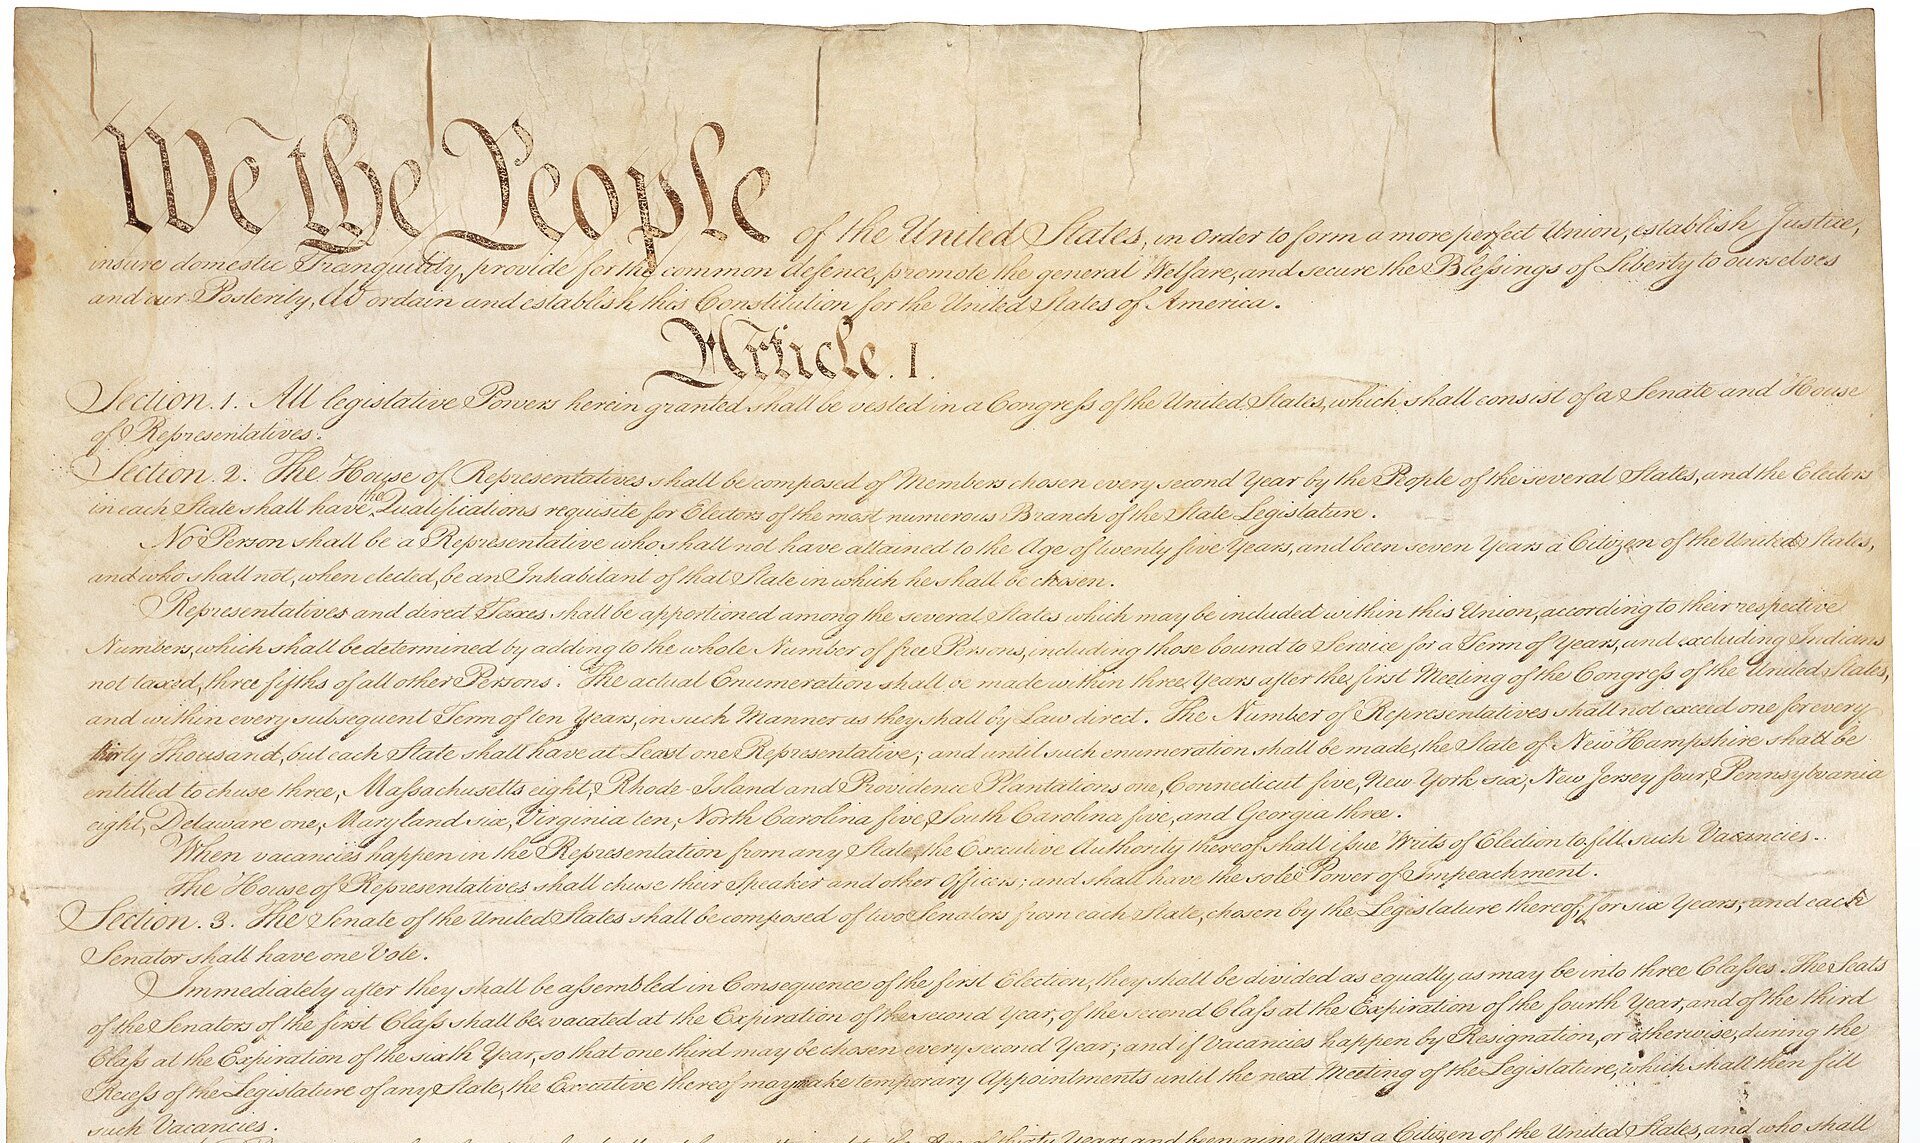 We the People of the United States, in Order to form a more perfect Union, establish Justice,
insure domestic Tranquility, provide for the common defence, promote the general Welfare, and secure the Blessings of Liberty to ourselves
and our Posterity, do ordain and establish this Constitution for the United States of America.
Article. I.
Section. 1. All legislative Powers herein granted shall be vested in a Congress of the United States, which shall consist of a Senate and House
of Representatives.
Section. 2. The House of Representatives shall be composed of Members chosen every second Year by the People of the several States, and the Electors
in each State shall have the Qualifications requisite for Electors of the most numerous Branch of the State Legislature.
No Person shall be a Representative who shall not have attained to the Age of twenty five Years, and been seven Years a Citizen of the United States,
and who shall not, when elected, be an Inhabitant of that State in which he shall be chosen.
Representatives and direct Taxes shall be apportioned among the several States which may be included within this Union, according to their respective
Numbers, which shall be determined by adding to the whole Number of free Persons, including those bound to Service for a Term of Years, and excluding Indians
not taxed, three fifths of all other Persons. The actual Enumeration shall be made within three Years after the first Meeting of the Congress of the United States,
and within every subsequent Term of ten Years, in such Manner as they shall by Law direct. The Number of Representatives shall not exceed one for every
thirty Thousand, but each State shall have at Least one Representative; and until such enumeration shall be made, the State of New Hampshire shall be
entitled to chuse three, Massachusetts eight, Rhode-Island and Providence Plantations one, Connecticut five, New-York six, New Jersey four, Pennsylvania
eight, Delaware one, Maryland six, Virginia ten, North Carolina five, South Carolina five, and Georgia three.
When vacancies happen in the Representation from any State, the Executive Authority thereof shall issue Writs of Election to fill such Vacancies.
The House of Representatives shall chuse their Speaker and other Officers; and shall have the sole Power of Impeachment.
Section. 3. The Senate of the United States shall be composed of two Senators from each State, chosen by the Legislature thereof, for six Years; and each
Senator shall have one Vote.
Immediately after they shall be assembled in Consequence of the first Election, they shall be divided as equally as may be into three Classes. The Seats
of the Senators of the first Class shall be vacated at the Expiration of the second Year, of the second Class at the Expiration of the fourth Year, and of the third
Class at the Expiration of the sixth Year, so that one third may be chosen every second Year; and if Vacancies happen by Resignation, or otherwise, during the
Recess of the Legislature of any State, the Executive thereof may make temporary Appointments until the next Meeting of the Legislature, which shall then fill
such Vacancies.
the Age of thirty Years and been nine Years a Citizen of the United States, and who shall